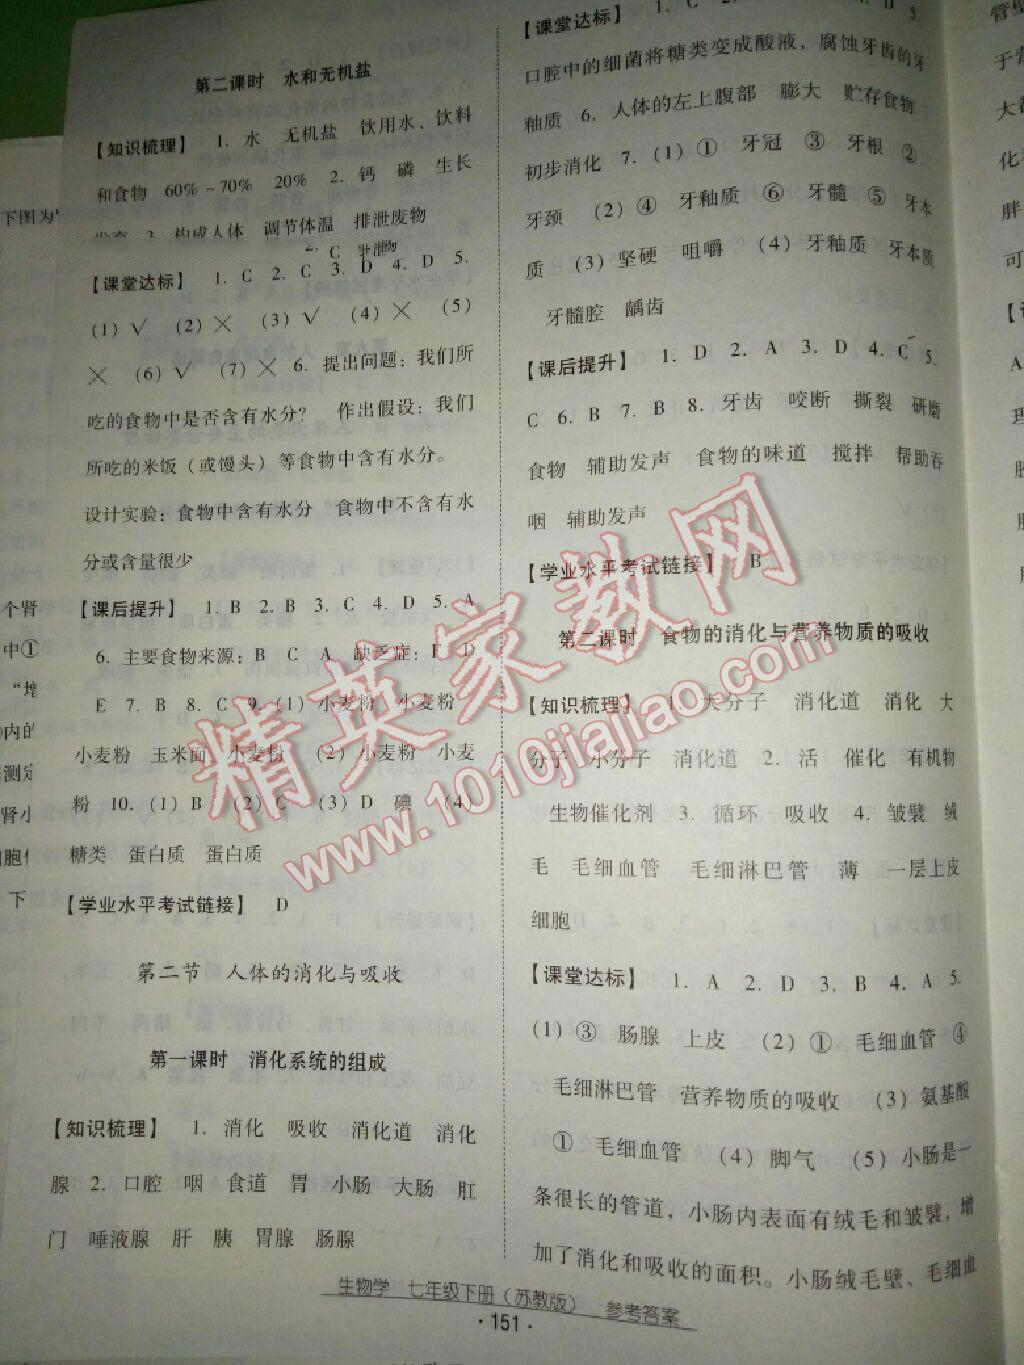 第二课时 水和无机盐
【知识梳理】 1. 水 无机盐 饮用水、饮料
和食物 60%~70% 20% 2. 钙 磷 生长
3. 构成人体 调节体温 排泄废物
【课堂达标】 1. C 2. C 3. D 4. D 5.
(1) √ (2) × (3) √ (4) × (5)
× (6) √ (7) × 6. 提出问题：我们所
吃的食物中是否含有水分？ 作出假设：我们
所吃的米饭（或馒头）等食物中含有水分。
设计实验：食物中含有水分 食物中不含有水
分或含量很少
【课后提升】 1. B 2. B 3. C 4. D 5. A
6. 主要食物来源：B C A 缺乏症：F D
E 7. B 8. C 9. (1) 小麦粉 小麦粉
小麦粉 玉米面 小麦粉 (2) 小麦粉 小麦
粉 10. (1) B (2) C (3) D 碘 (4)
糖类 蛋白质 蛋白质
【学业水平考试链接】 D
第二节 人体的消化与吸收
第一课时 消化系统的组成
【知识梳理】 1. 消化 吸收 消化道 消化
腺 2. 口腔 咽 食道 胃 小肠 大肠 肛
门 唾液腺 肝 胰 胃腺 肠腺
【课堂达标】 1. C 2. 4. D 5.
口腔中的细菌将糖类变成酸液，腐蚀牙齿的牙
釉质 6. 人体的左上腹部 膨大 贮存食物
初步消化 7. (1) ① 牙冠 ③ 牙根 ②
牙颈 (2) ④ 牙釉质 ⑥ 牙髓 ⑤ 牙本
质 (3) 坚硬 咀嚼 (4) 牙釉质 牙本质
牙髓腔 龋齿
【课后提升】 1. D 2. A 3. D 4. C 5.
C 6. B 7. B 8. 牙齿 咬断 撕裂 研磨
食物 辅助发声 食物的味道 搅拌 帮助吞
咽 辅助发声
【学业水平考试链接】 B
第二课时 食物的消化与营养物质的吸收
【知识梳理】 1. 大分子 消化道 消化 大
分子 小分子 消化道 2. 活 催化 有机物
生物催化剂 3. 循环 吸收 4. 皱襞 绒
毛 毛细血管 毛细淋巴管 薄 一层上皮
细胞
【课堂达标】 1. A 2. D 3. B 4. A 5.
(1) ③ 肠腺 上皮 (2) ① 毛细血管 ④
毛细淋巴管 营养物质的吸收 (3) 氨基酸
① 毛细血管 (4) 脚气 (5) 小肠是一
条很长的管道，小肠内表面有绒毛和皱襞，增
加了消化和吸收的面积。小肠绒毛壁、毛细血
生物学 七年级下册（苏教版） 参考答案
·151·
下图为
个肾
中①
“增
内的
测定
肾小
下
管壁
于
化
胖
可
理
精英家教网
www.1010jiajiao.com